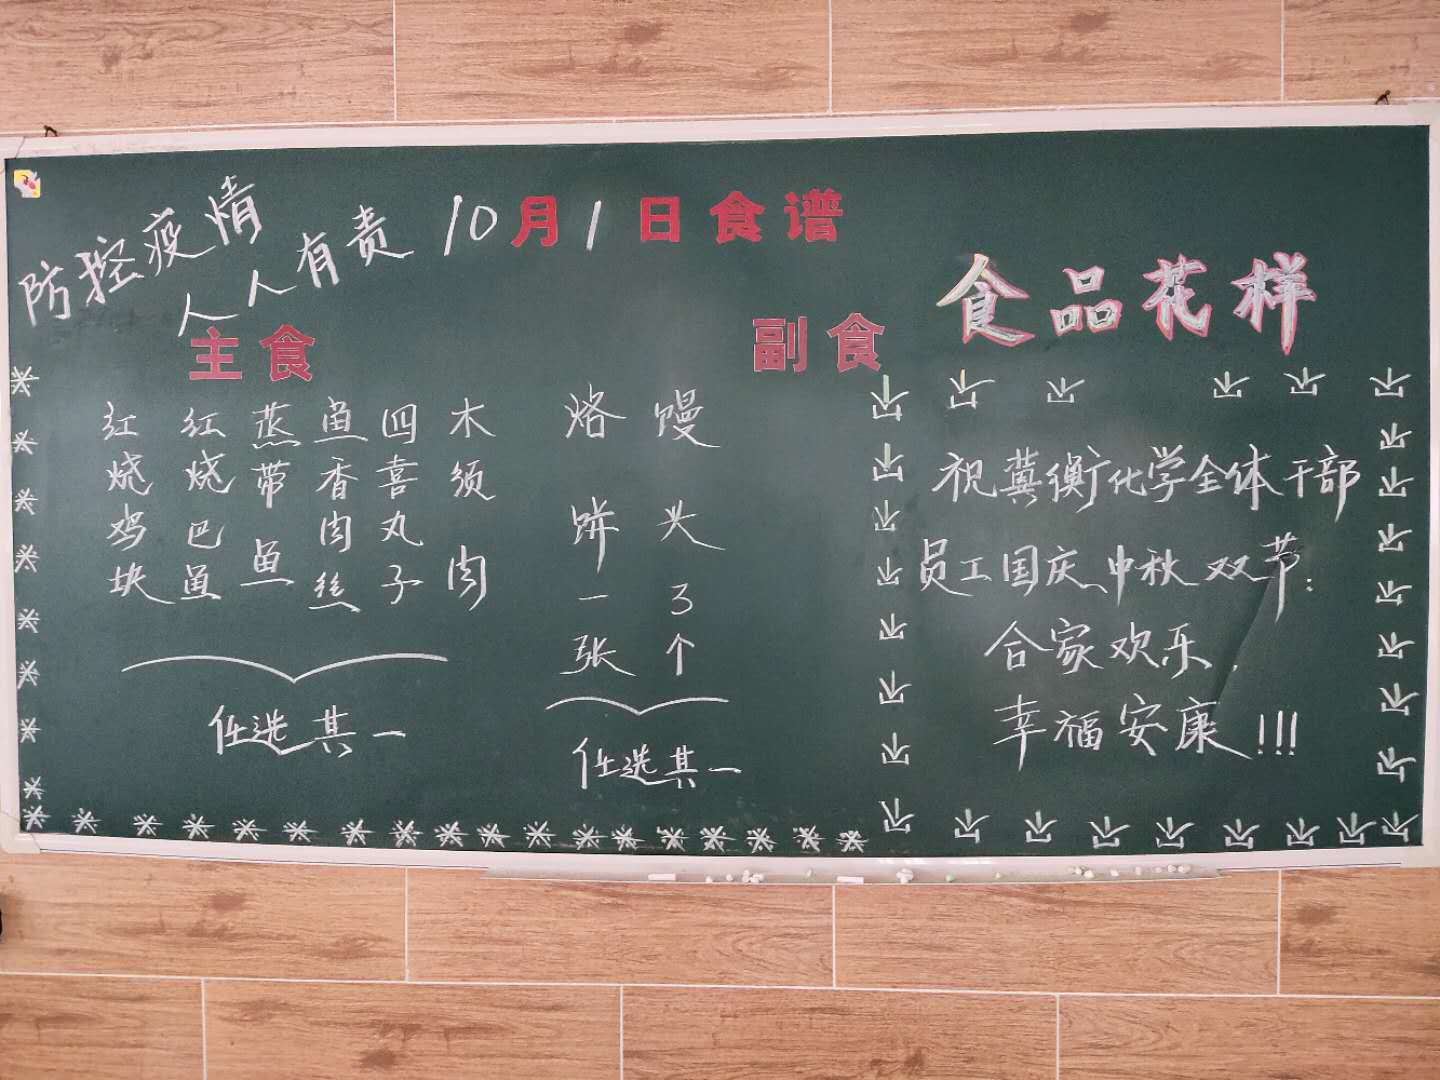 防控疫情
人人有责
10月1日食谱
主食
副食
食品花样
红烧鸡块
红烧巴鱼
蒸带鱼
鱼香肉丝
四喜丸子
木须肉
任选其一
烙饼一张
馒头3个
任选其一
祝冀衡化学全体干部
员工国庆中秋双节:
合家欢乐.
幸福安康!!!